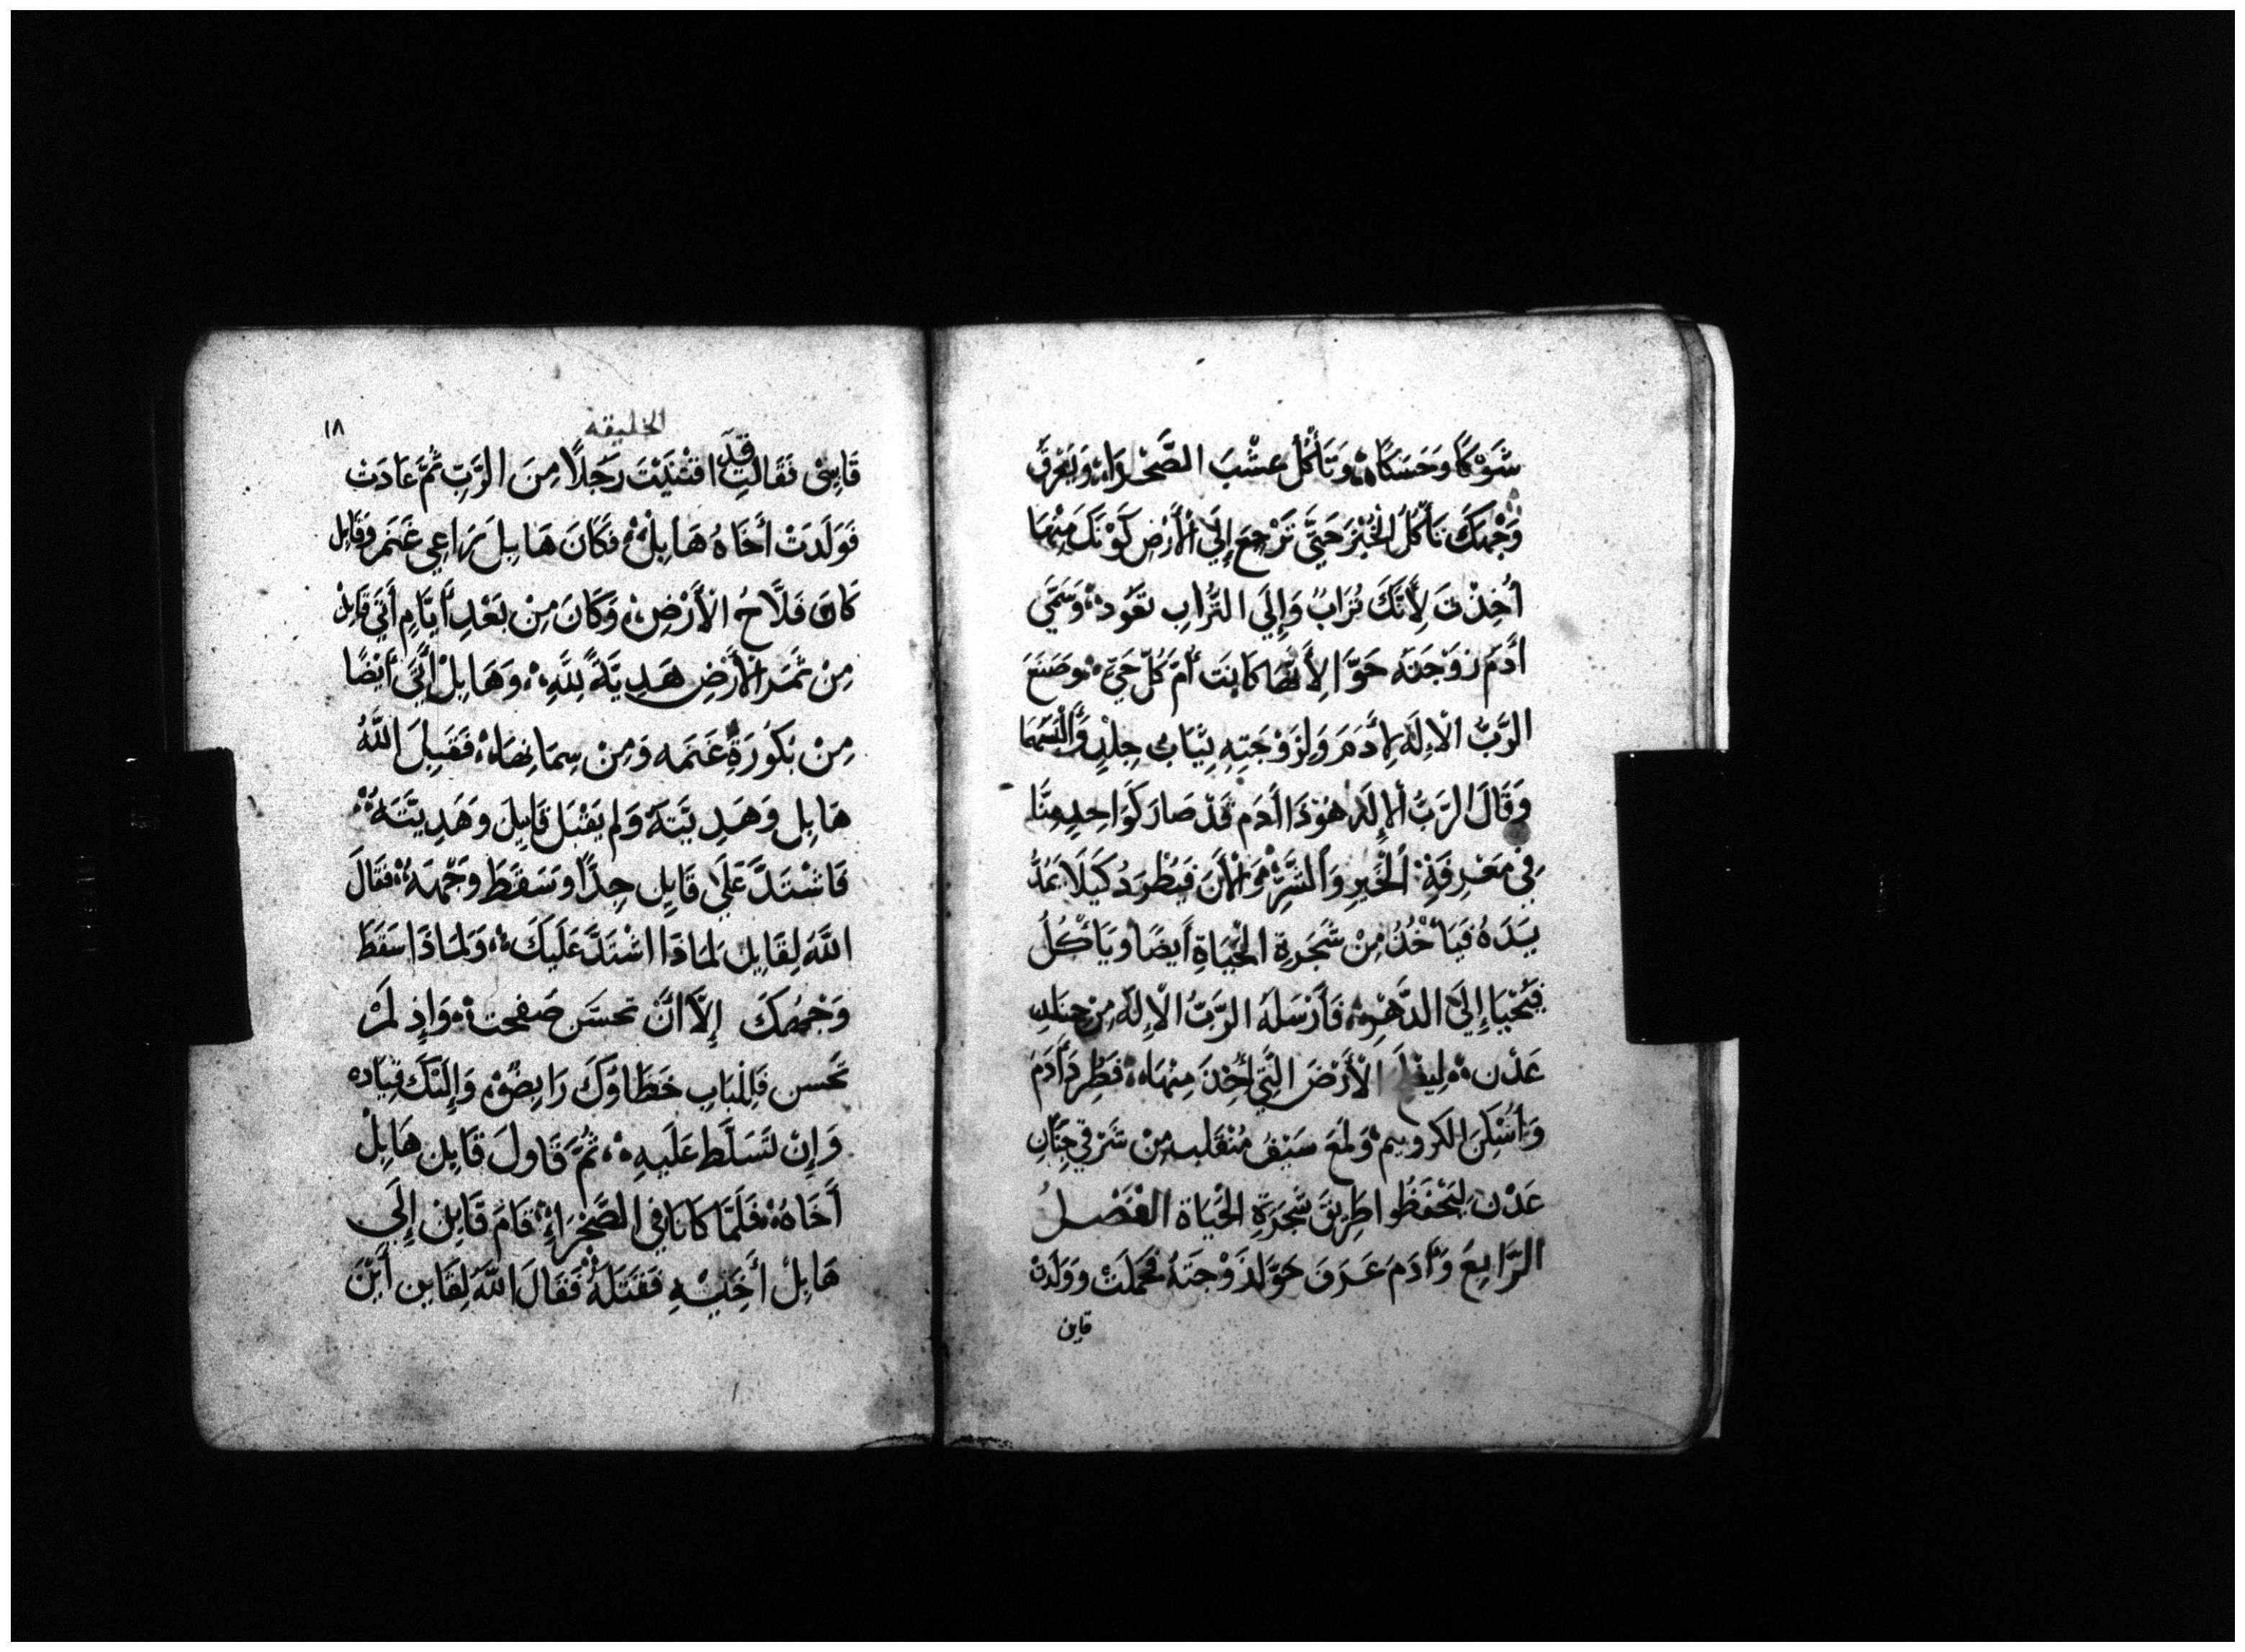 شَوْكًا وَحَسَكًا ۞ وَتَأْكُلُ عُشْبَ الصَّحْرَاءِ ۞ وَبِعَرَقِ
وَجْهِكَ تَأْكُلُ الْخُبْزَ حَتَّى تَرْجِعَ إِلَى الْأَرْضِ كَوْنَكَ مِنْهَا
أُخِذْتَ لِأَنَّكَ تُرَابٌ وَإِلَى التُّرَابِ تَعُود ۞ وَسَمَّى
أَدَمُ زَوْجَتَهُ حَوَّا لِأَنَّهَا كَانَت أُمَّ كُلِّ حَيّ ۞ وَصَنَعَ
الرَّبُّ الْإِلَهُ لِأَدَمَ وَلِزَوْجَتِهِ ثِيَابُ جِلْدٍ وَأَلْبَسَهُمَا
وَقَالَ الرَّبُّ الْإِلَهُ هُوَذَا أَدَم قَدْ صَارَ كَوَاحِدٍ مِنَّا
فِي مَعْرِفَةِ الْخَيْرِ وَالشَّرِّ وَالْأَنَ فَيُطْرَدُ كَيْلَا يَمُدُّ
يَدَهُ فَيَأْخُذُ مِنْ شَجَرَةِ الْحَيَاةِ أَيضًا وَيَأْكُلُ
فَيَحْيَا إِلَى الدَّهْرِ ۞ فَأَرْسَلَهُ الرَّبُّ الْإِلَهُ مِنْ جِنَانِ
عَدْن ۞ لِيفلَحَ الْأَرْضَ الَّتِي أُخِذَ مِنْهَا ۞ فَطُرِدَ أَدَمَ
وَأَسْكَنَ الكروبيم وَلَمْعَ سَيْفٍ مُنْقَلِبٍ مِنْ شَرْقِي جِنَانِ
عَدْن لِيَحْفَظُوا طَرِيقَ شَجَرَةِ الْحَيَاة الْفَصْلُ
الرَّابِعُ وَأَدَمَ عَرَفَ حَوَّا زَوْجَتَهُ فَحَمَلَتْ وَوَلَدَتْ
قاين
الخليقه
١٨
قَايِنْ فَقَالَتِ قَدِ اقْتَنَيْتُ رَجُلًا مِنَ الرَّبِّ ثُمَّ عَادَت
فَوَلَدَتْ أَخَاهُ هَابِلْ ۞ فَكَانَ هَابِلَ رَاعِي غَنَم وَقَايِل
كَانَ فَلَّاحُ الْأَرْضِ ۞ وَكَانَ مِنْ بَعْدِ أَيَّامٍ أَتَى قَايِلْ
مِنْ ثَمَرِ الْأَرْضِ هَدِيَّةً لِلَّهِ ۞ وَهَابِلْ أَتَى أَيْضًا
مِنْ بَكُورَةِ غَنَمِه وَمِنْ سِمَانِهَا ۞ فَقَبِلَ اللَّهُ
هَابِل وَهَدِيَّتَهُ وَلم يَقْبَل قَايِلَ وَهَدِيَّتَهُ ۞
فَاشْتَدَّ عَلَى قَايِل جِدًّا وَسَقَطَ وَجْهُهُ ۞ فَقَالَ
اللَّهُ لِقَايِل لِمَاذَا اشْتَدَّ عَلَيكَ ۞ وَلِمَاذَا سَقَطَ
وَجْهُكَ إِلَّا أَنَّ تحسَّن صَفحت ۞ وَإِذ لَمْ
تحسن فَلِلْبَابِ خَطَاؤكَ رَابِضٌ وَإِلَيْكَ قِيَادُه
وَإِنْ تَسَلَّط عَلَيهِ ۞ ثُمَّ قَاولَ قَايِن هَابِلْ
أَخَاهُ ۞ فَلَمَّا كَانَا فِي الصَّحْرَاءِ قَامَ قَايِنْ إِلَى
هَابِلْ أَخِيْهِ فَقَتَلَهُ ۞ فَقَالَ اللَّهُ لِقَايِن أَيْنَ